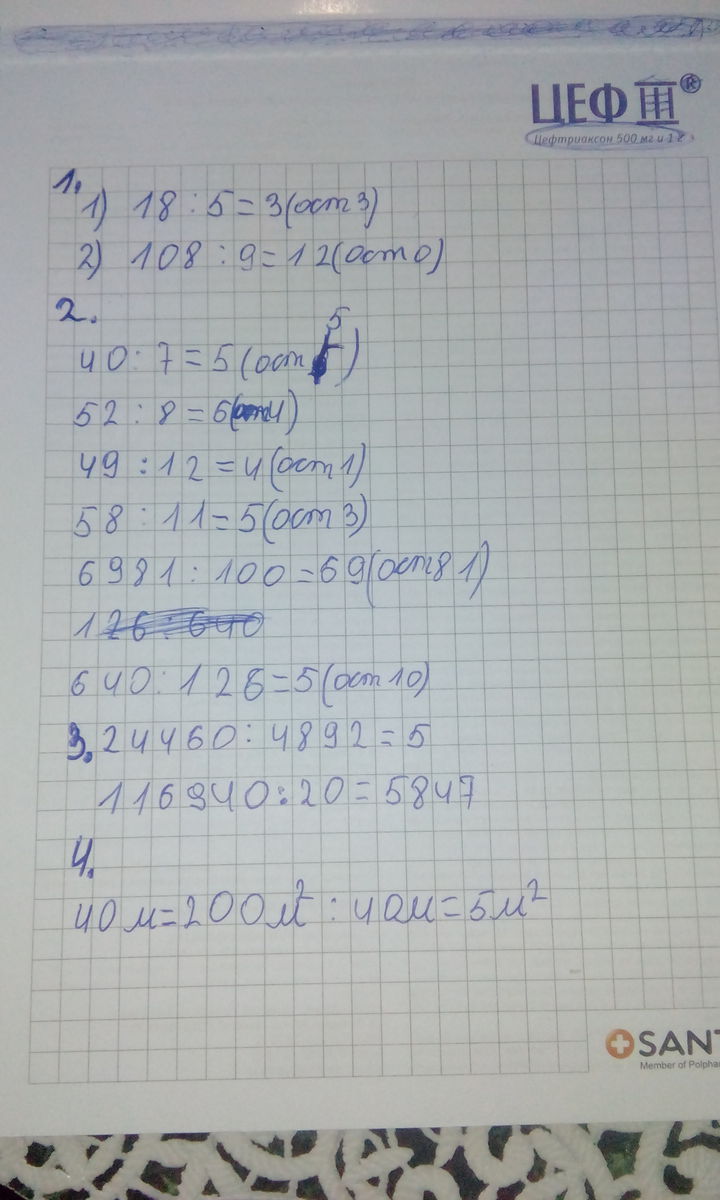 ЦЕФ III®
Цефтриаксон 500 мг и 1 г
1.
1) 18 : 5 = 3 (ост 3)
2) 108 : 9 = 12 (ост 0)
2.
40 : 7 = 5 (ост 5)
52 : 8 = 6 (ост 4)
49 : 12 = 4 (ост 1)
58 : 11 = 5 (ост 3)
6981 : 100 = 69 (ост 81)
126 : 640
640 : 126 = 5 (ост 10)
3. 24460 : 4892 = 5
116940 : 20 = 5847
4.
40 м = 200 м² : 40м = 5 м²
SANT
Member of Polpha